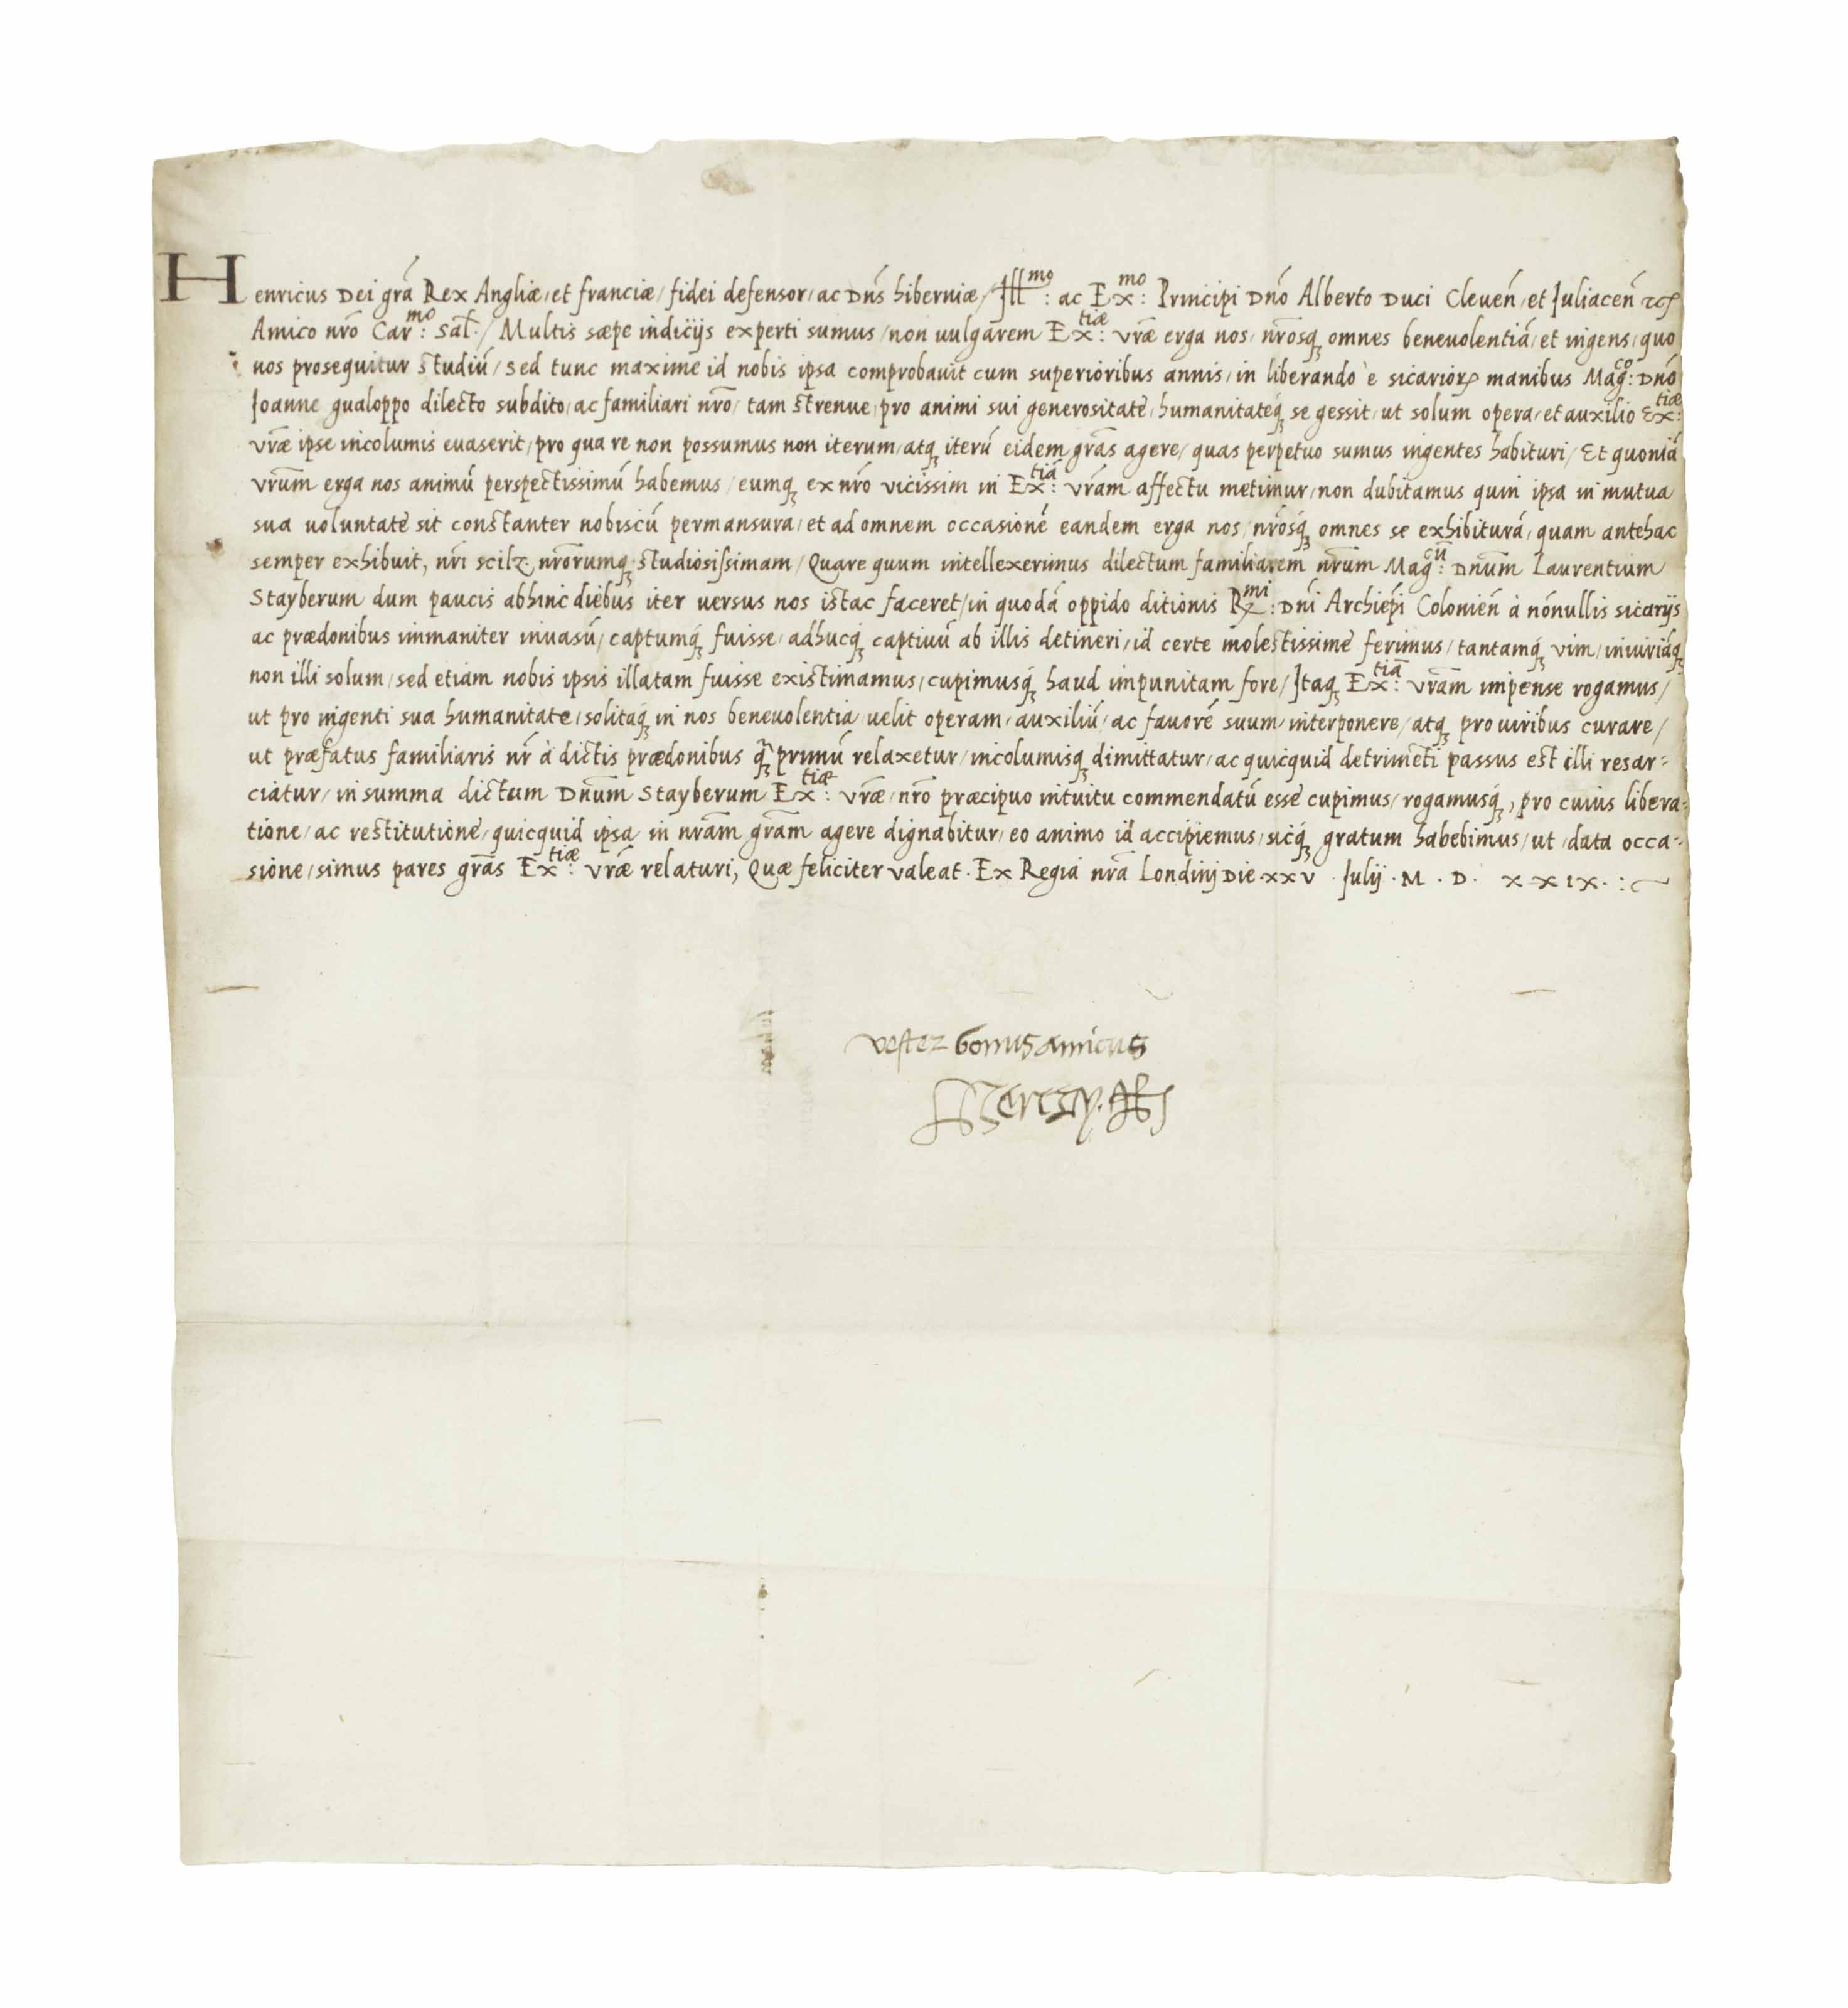 Henricus Dei grã Rex Angliæ, et franciæ / fidei defensor, ac Dñs hiberniæ / Ill^mo: ac Ex^mo: Principi Dño Alberto Duci Cleueñ, et Iuliaceñ
Amico nrõ Car^mo: Sal̃. / Multis sæpe indicijs experti sumus / non uulgarem Ex^tiæ: vrãe erga nos, nrõsq̨ omnes beneuolentiã, et ingens, quo
nos prosequitur studiũ / sed tunc maxime id nobis ipsa comprobauit cum superioribus annis, in liberando è sicarioꝝ manibus Mag^co: Dño
Ioanne gualoppo dilecto subdito, ac familiari nrõ, tam strenue, pro animi sui generositate, humanitateq̨ se gessit, ut solum opera, et auxilio Ex^tiæ:
vrãe ipse incolumis euaserit, pro qua re non possumus non iterum, atq̨ iterũ eidem grãs agere, quas perpetuo sumus ingentes habituri / Et quoniã
vrũm erga nos animũ perspectissimũ habemus, eumq̨ ex nrõ vicissim in Ex^tiã: vrãm affectu metimur, non dubitamus quin ipsa in mutua
sua uoluntate sit constanter nobiscũ permansura, et ad omnem occasionẽ eandem erga nos, nrõsq̨ omnes se exhibiturã, quam antehac
semper exhibuit, nrĩ scilz. nrõrumq̨ studiosissimam / Quare quum intellexerimus dilectum familiarem nrũm Mag^cũ: Dnũm Laurentium
Stayberum dum paucis abhinc diebus iter uersus nos istac faceret, in quodã oppido ditionis R^mi: Dñi Archiep̃i Colonieñ à nõnullis sicarijs
ac prædonibus immaniter inuasũ, captumq̨ fuisse, adhucq̨ captiuũ ab illis detineri, id certe molestissime ferimus, tantamq̨ vim, iniuriãq̨
non illi solum, sed etiam nobis ipsis illatam fuisse existimamus, cupimusq̨ haud impunitam fore / Itaq̨ Ex^tiã: vrãm impense rogamus /
ut pro ingenti sua humanitate, solitaq̨ in nos beneuolentia, uelit operam, auxiliũ, ac fauorẽ suum, interponere, atq̨ pro uiribus curare /
ut præfatus familiaris nr̃ à dictis prædonibus q̃ primũ relaxetur, incolumisq̨ dimittatur, ac quicquid detrimẽti passus est illi resar=
ciatur, in summa dictum Dnũm Stayberum Ex^tiæ: vrãe, nrõ præcipuo intuitu commendatũ esse cupimus, rogamusq̨, pro cuius libera=
tione, ac restitutione, quicquid ipsa in nrãm grãm agere dignabitur, eo animo id accipiemus, sicq̨ gratum habebimus, ut, data occa=
sione, simus pares grãs Ex^tiæ: vrãe relaturi, Quæ feliciter valeat. Ex Regia nrã Londinj Die xxv. Iulij. M. D. xxix.
vester bonus amicus
Henry R